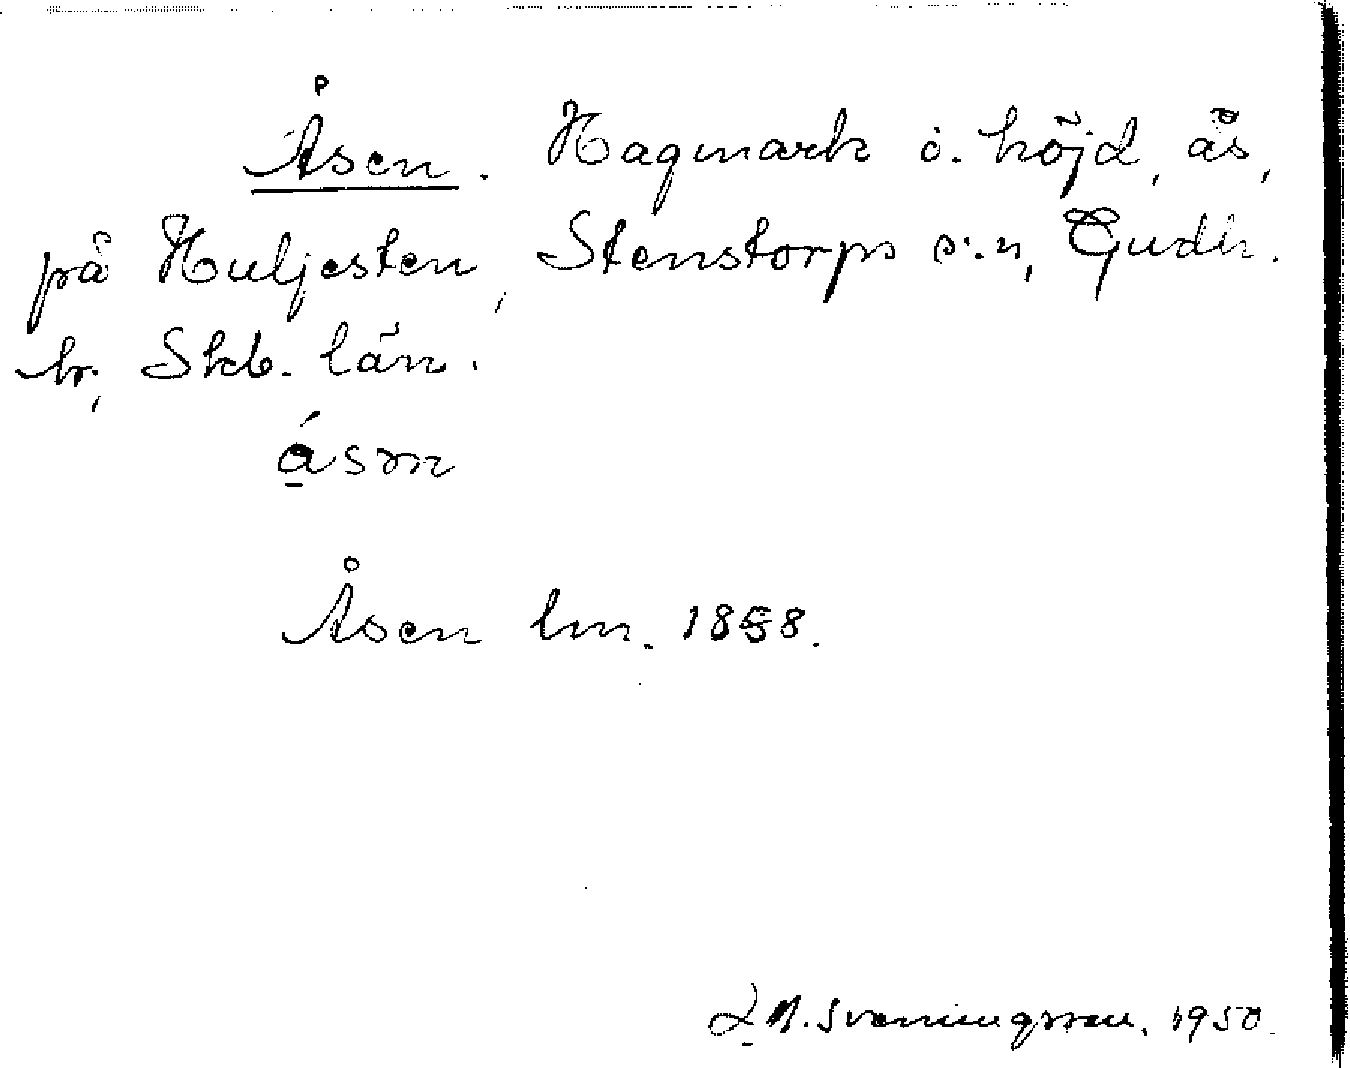 Åsen. Hagmark o. höjd, ås,
på Huljesten, Stenstorps s:n, Gudh.
hr, Skb. län.
ásɷn
Åsen lm. 1858.
A. Sveningsson. 1950.